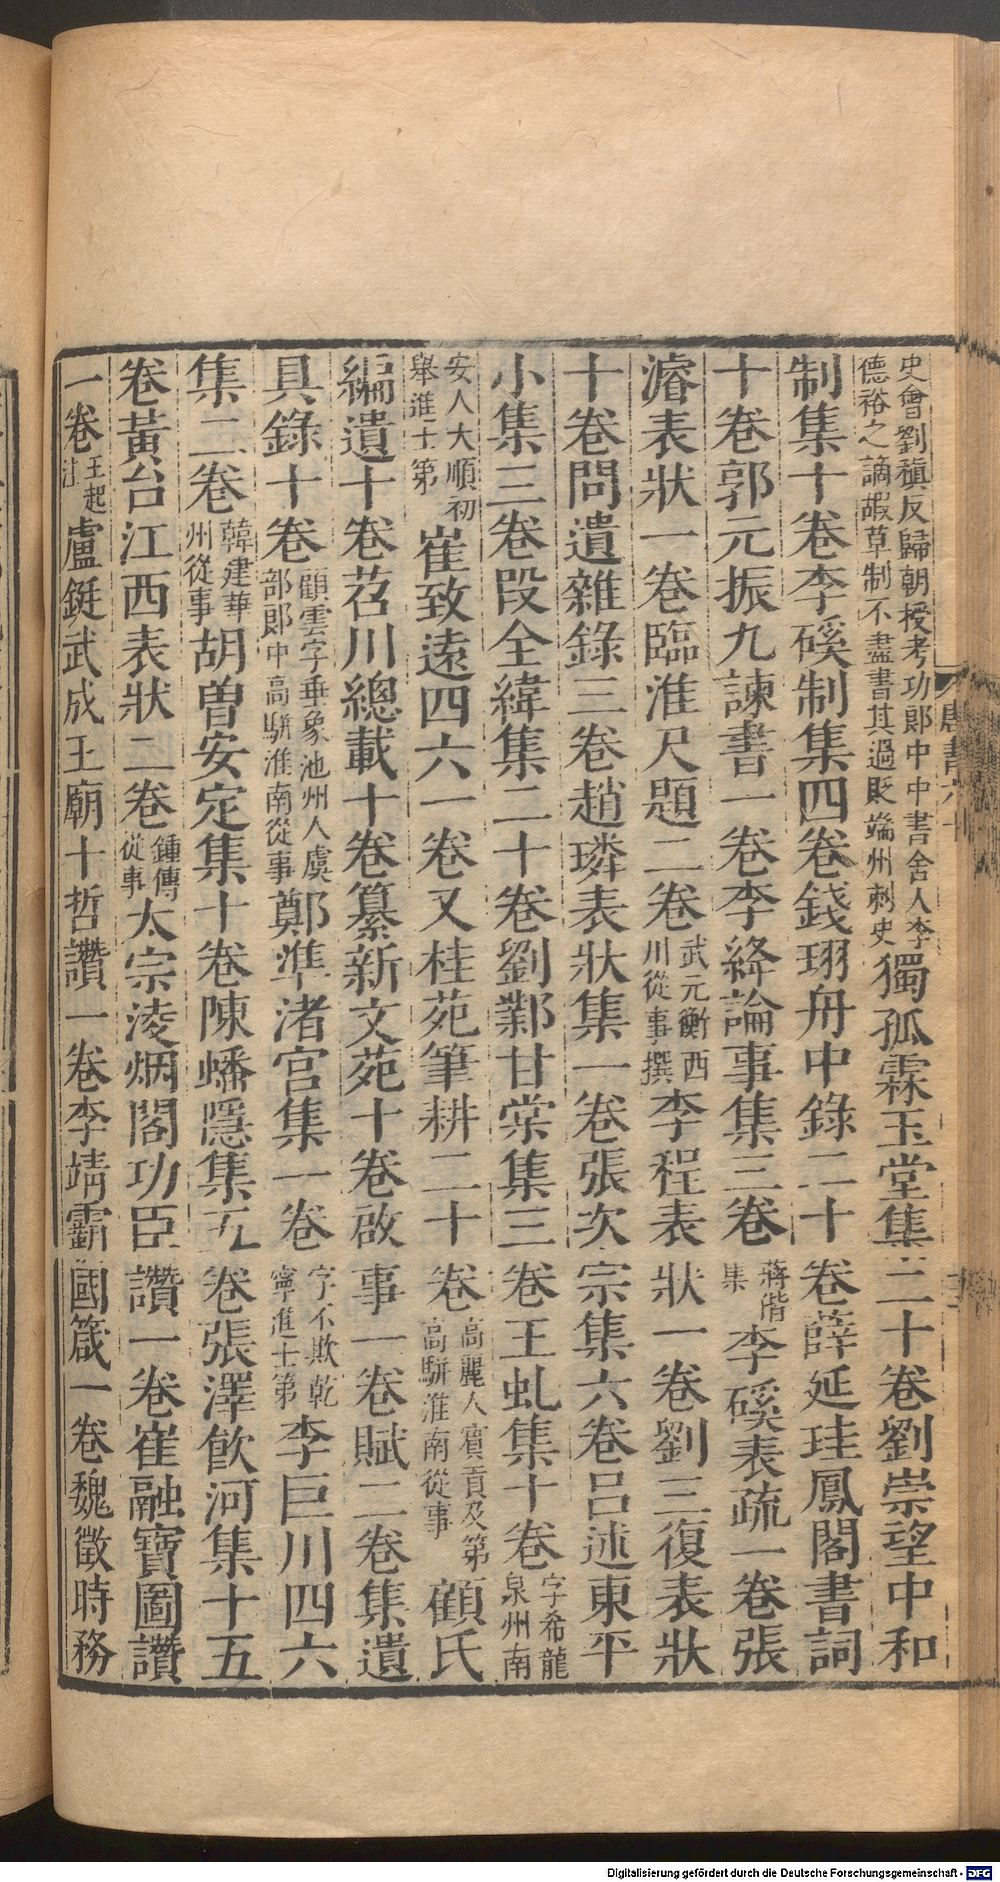 史會劉稹反歸朝授考功郎中中書舍人李德裕之謫嘏草制不盡書其過貶端州刺史獨孤霖玉堂集二十卷劉崇望中和
制集十卷李磎制集四卷錢珝舟中錄二十卷薛延珪鳳閣書詞
十卷郭元振九諫書一卷李絳論事集三卷蔣偕集李磎表疏一卷張
濬表狀一卷臨淮尺題二卷武元衡西川從事撰李程表狀一卷劉三復表狀
十卷問遺雜錄三卷趙璘表狀集一卷張次宗集六卷呂述東平
小集三卷段全緯集二十卷劉鄴甘棠集三卷王虬集十卷字希龍泉州南
安人大順初舉進士第崔致遠四六一卷又桂苑筆耕二十卷高麗人賓貢及第高駢淮南從事顧氏
編遺十卷苕川總載十卷纂新文苑十卷啟事一卷賦二卷集遺
具錄十卷顧雲字垂象池州人虞部郎中高駢淮南從事鄭準渚宮集一卷字不欺乾寧進士第李巨川四六
集二卷韓建華州從事胡曾安定集十卷陳蟠隱集五卷張澤飲河集十五
卷黃台江西表狀二卷鍾傳從事太宗淩烟閣功臣讚一卷崔融寶圖讚
一卷王起注盧鋌武成王廟十哲讚一卷李靖霸國箴一卷魏徵時務
唐書六十
Digitalisierung gefördert durch die Deutsche Forschungsgemeinschaft - DFG